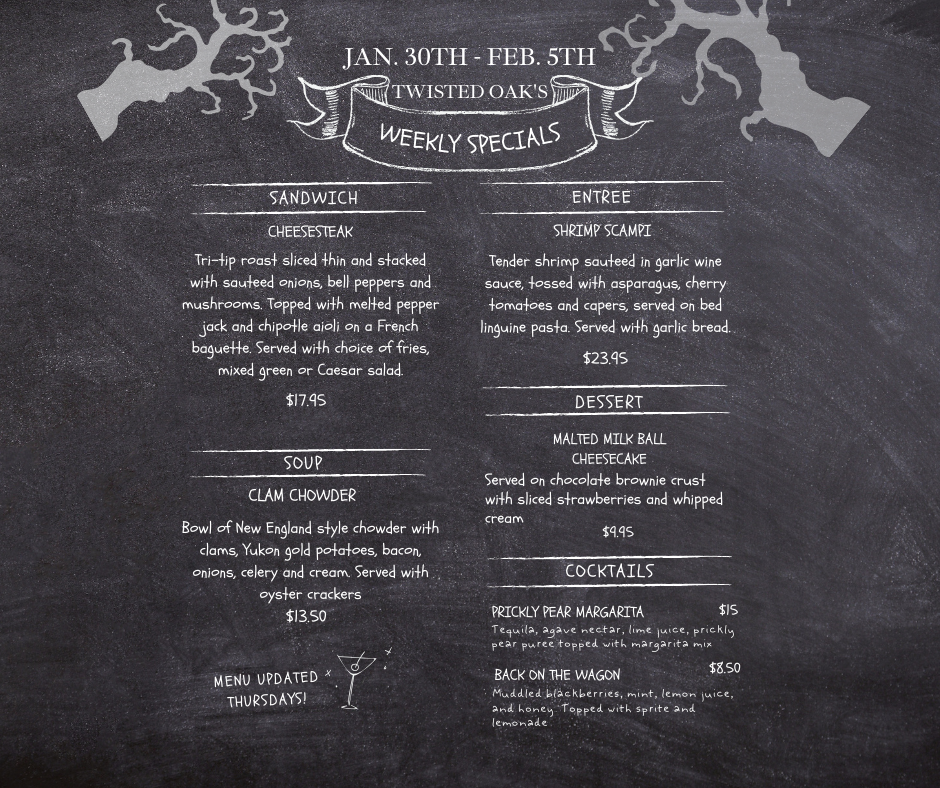 JAN. 30TH - FEB. 5TH
TWISTED OAK'S
WEEKLY SPECIALS
SANDWICH
CHEESESTEAK
Tri-tip roast sliced thin and stacked
with sauteed onions, bell peppers and
mushrooms. Topped with melted pepper
jack and chipotle aioli on a French
baguette. Served with choice of fries,
mixed green or Caesar salad.
$17.95
SOUP
CLAM CHOWDER
Bowl of New England style chowder with
clams, Yukon gold potatoes, bacon,
onions, celery and cream. Served with
oyster crackers
$13.50
MENU UPDATED
THURSDAYS!
ENTREE
SHRIMP SCAMPI
Tender shrimp sauteed in garlic wine
sauce, tossed with asparagus, cherry
tomatoes and capers, served on bed
linguine pasta. Served with garlic bread..
$23.95
DESSERT
MALTED MILK BALL
CHEESECAKE
Served on chocolate brownie crust
with sliced strawberries and whipped
cream
$9.95
COCKTAILS
PRICKLY PEAR MARGARITA $15
Tequila, agave nectar, lime juice, prickly
pear puree topped with margarita mix
BACK ON THE WAGON $8.50
Muddled blackberries, mint, lemon juice,
and honey. Topped with sprite and
lemonade